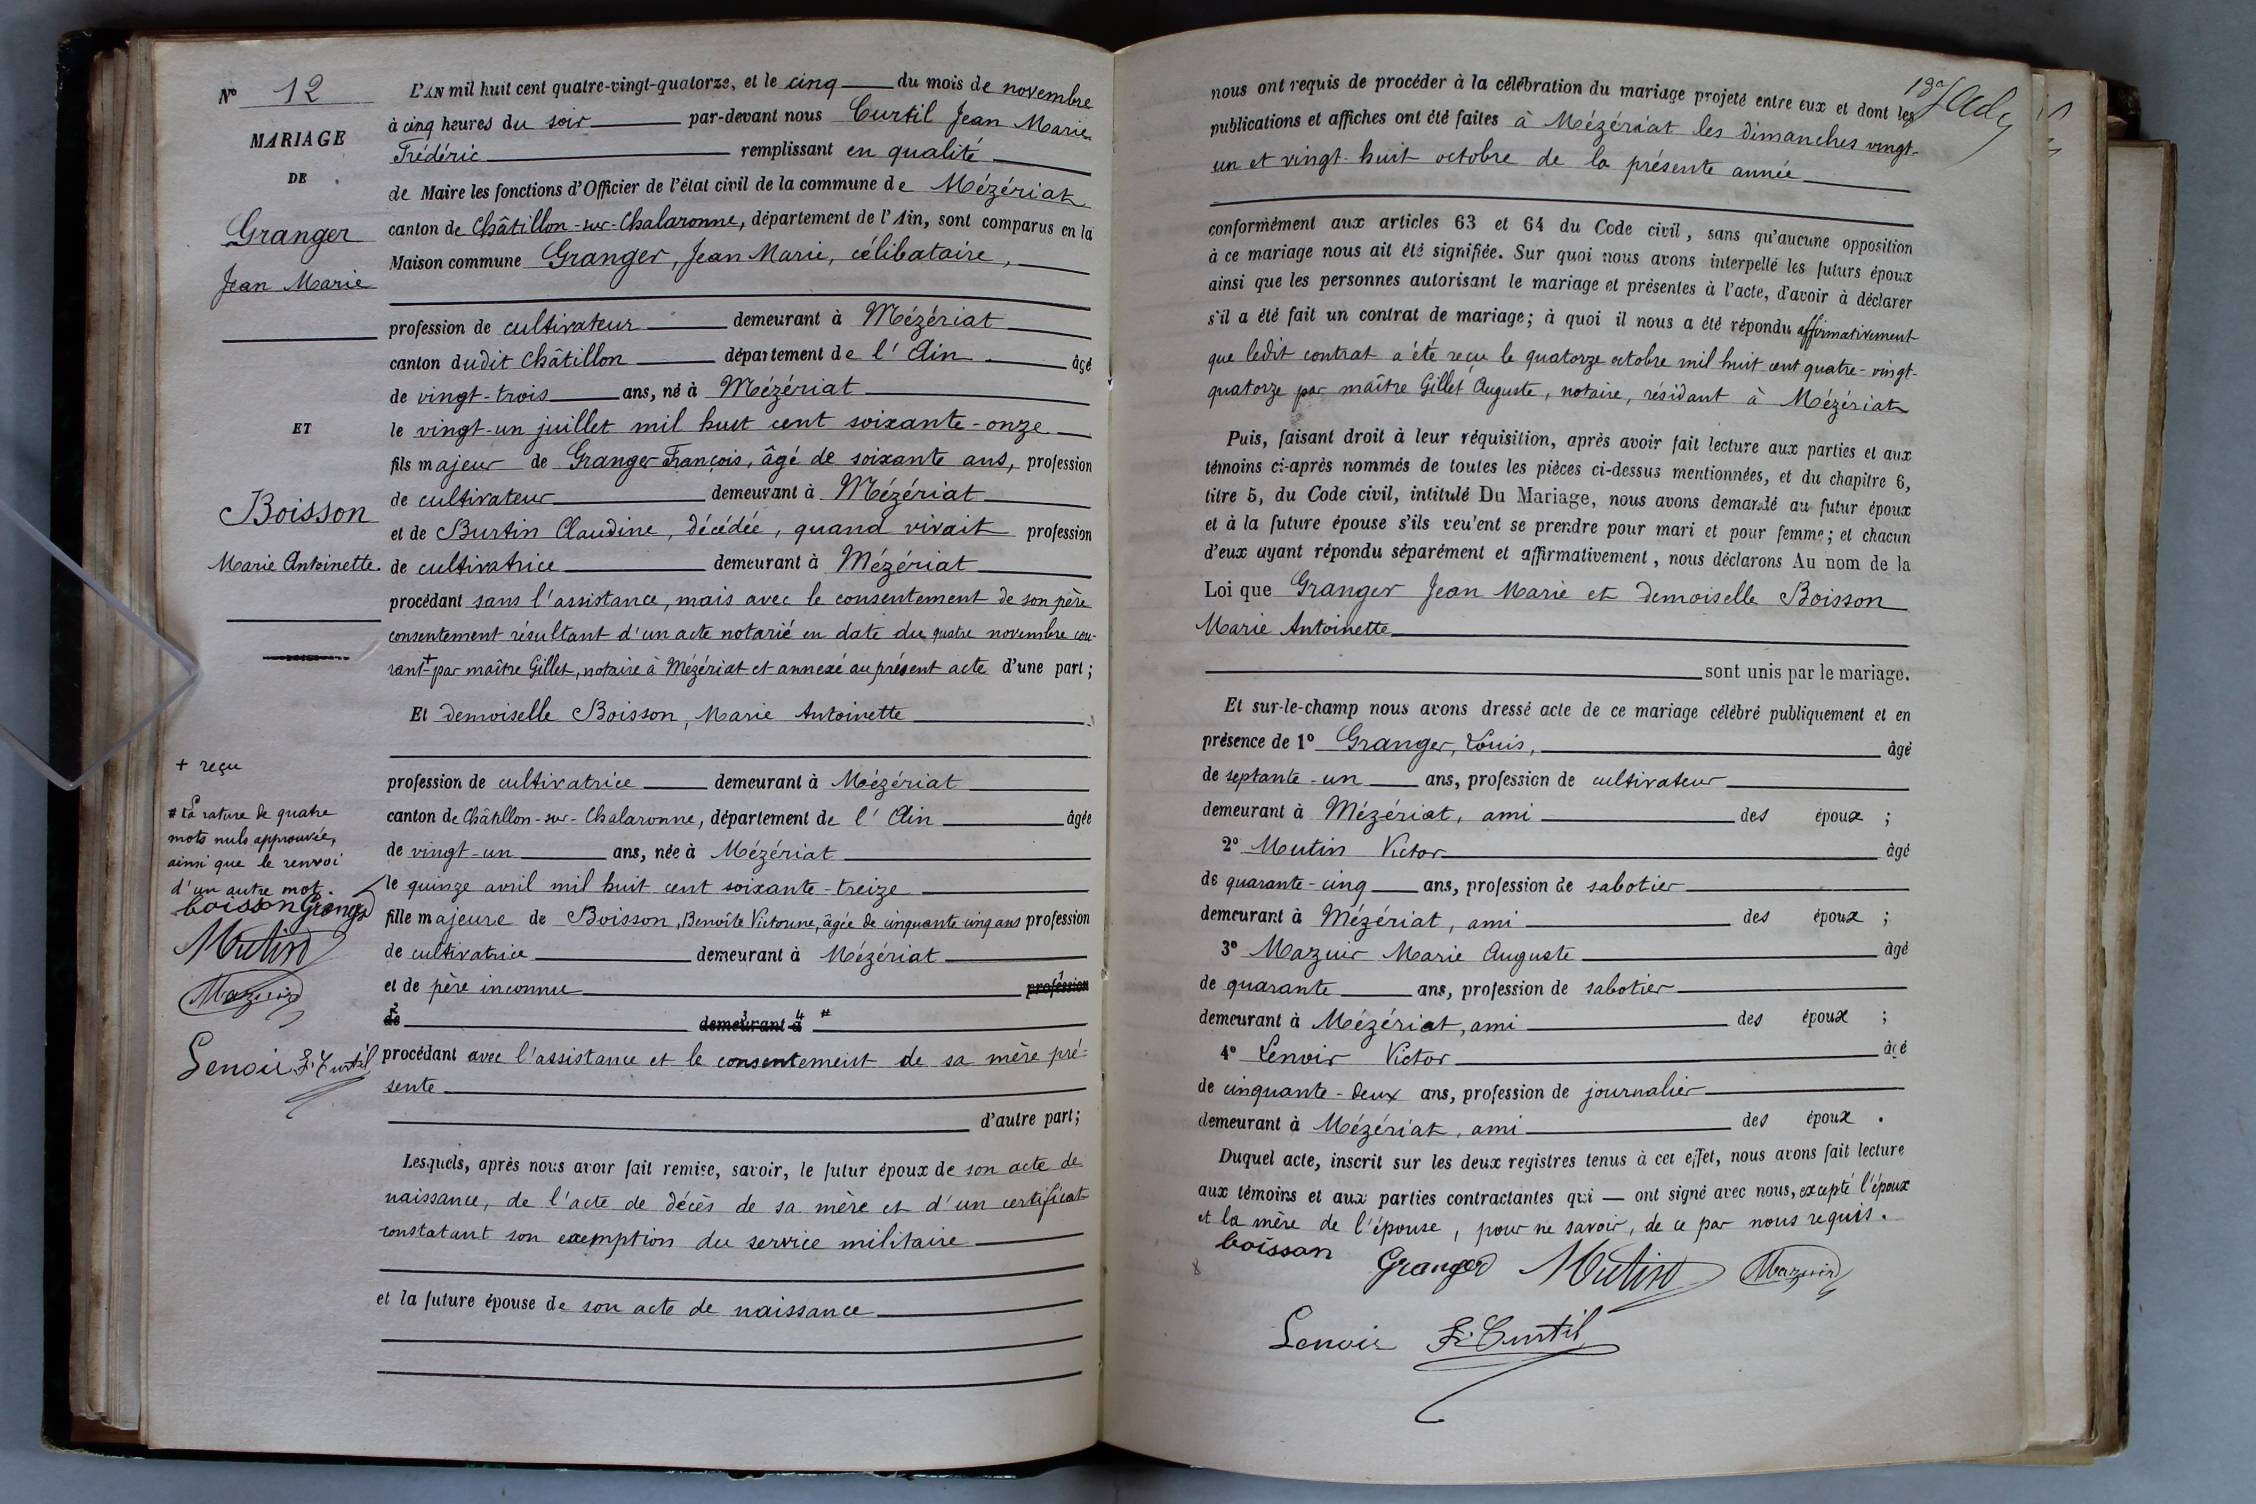 Nº 12
MARIAGE
DE
Granger
Jean Marie
ET
Boisson
Marie Antoinette.
+ reçu
# La rature de quatre
mots nuls approuvée,
ainsi que le renvoi
d'un autre mot.
boisson Granger
Mutin
Mazuir
Lenoir F. Curtil
L'AN mil huit cent quatre-vingt-quatorze, et le cinq du mois de novembre
à cinq heures du soir par-devant nous Curtil Jean Marie
Frédéric remplissant en qualité
de Maire les fonctions d'Officier de l'état civil de la commune de Mézériat
canton de Châtillon-sur-Chalaronne, département de l'Ain, sont comparus en la
Maison commune Granger, Jean Marie, célibataire,
profession de cultivateur demeurant à Mézériat
canton dudit Châtillon département de l'Ain âgé
de vingt-trois ans, né à Mézériat
le vingt-un juillet mil huit cent soixante-onze
fils majeur de Granger François, âgé de soixante ans, profession
de cultivateur demeurant à Mézériat
et de Burtin Claudine, décédée, quand vivait profession
de cultivatrice demeurant à Mézériat
procédant sans l'assistance, mais avec le consentement de son père
consentement résultant d'un acte notarié en date du quatre novembre cou-
rant + par maître Gillet, notaire à Mézériat et annexé au présent acte d'une part ;
Et demoiselle Boisson, Marie Antoinette
profession de cultivatrice demeurant à Mézériat
canton de Châtillon-sur-Chalaronne, département de l'Ain âgée
de vingt-un ans, née à Mézériat
le quinze avril mil huit cent soixante-treize
fille majeure de Boisson, Benoîte Victorine, âgée de cinquante-cinq ans profession
de cultivatrice demeurant à Mézériat
et de père inconnu profession 1
de 2 demeurant 3 à 4 #
procédant avec l'assistance et le consentement de sa mère pré-
sente
d'autre part ;
Lesquels, après nous avoir fait remise, savoir, le futur époux de son acte de
naissance, de l'acte de décès de sa mère et d'un certificat
constatant son exemption du service militaire
et la future épouse de son acte de naissance
nous ont requis de procéder à la célébration du mariage projeté entre eux et dont les
publications et affiches ont été faites à Mézériat les dimanches vingt-
un et vingt-huit octobre de la présente année
conformément aux articles 63 et 64 du Code civil, sans qu'aucune opposition
à ce mariage nous ait été signifiée. Sur quoi nous avons interpellé les futurs époux
ainsi que les personnes autorisant le mariage et présentes à l'acte, d'avoir à déclarer
s'il a été fait un contrat de mariage ; à quoi il nous a été répondu affirmativement
que ledit contrat a été reçu le quatorze octobre mil huit cent quatre-vingt-
quatorze par maître Gillet Auguste, notaire, résidant à Mézériat
Puis, faisant droit à leur réquisition, après avoir fait lecture aux parties et aux
témoins ci-après nommés de toutes les pièces ci-dessus mentionnées, et du chapitre 6,
titre 5, du Code civil, intitulé Du Mariage, nous avons demandé au futur époux
et à la future épouse s'ils veulent se prendre pour mari et pour femme ; et chacun
d'eux ayant répondu séparément et affirmativement, nous déclarons Au nom de la
Loi que Granger Jean Marie et demoiselle Boisson
Marie Antoinette
sont unis par le mariage.
Et sur-le-champ nous avons dressé acte de ce mariage célébré publiquement et en
présence de 1º Granger, Louis, âgé
de septante-un ans, profession de cultivateur
demeurant à Mézériat, ami des époux ;
2º Mutin Victor âgé
de quarante-cinq ans, profession de sabotier
demeurant à Mézériat, ami des époux ;
3º Mazuir Marie Auguste âgé
de quarante ans, profession de sabotier
demeurant à Mézériat, ami des époux ;
4º Lenoir Victor âgé
de cinquante-deux ans, profession de journalier
demeurant à Mézériat, ami des époux .
Duquel acte, inscrit sur les deux registres tenus à cet effet, nous avons fait lecture
aux témoins et aux parties contractantes qui — ont signé avec nous, excepté l'époux
et la mère de l'épouse, pour ne savoir, de ce par nous requis.
boisson Granger Mutin Mazuir
Lenoir F. Curtil